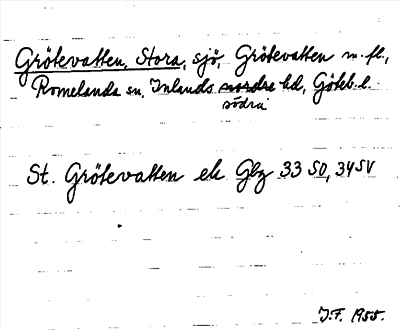 Grötevatten, Stora, sjö, Grötevatten m. fl.,
Romelanda sn, Inlands nordre hd, Göteb. l.
södra
St. Grötevatten ek Gbg 33 SO, 34 SV
J.F. 1955.